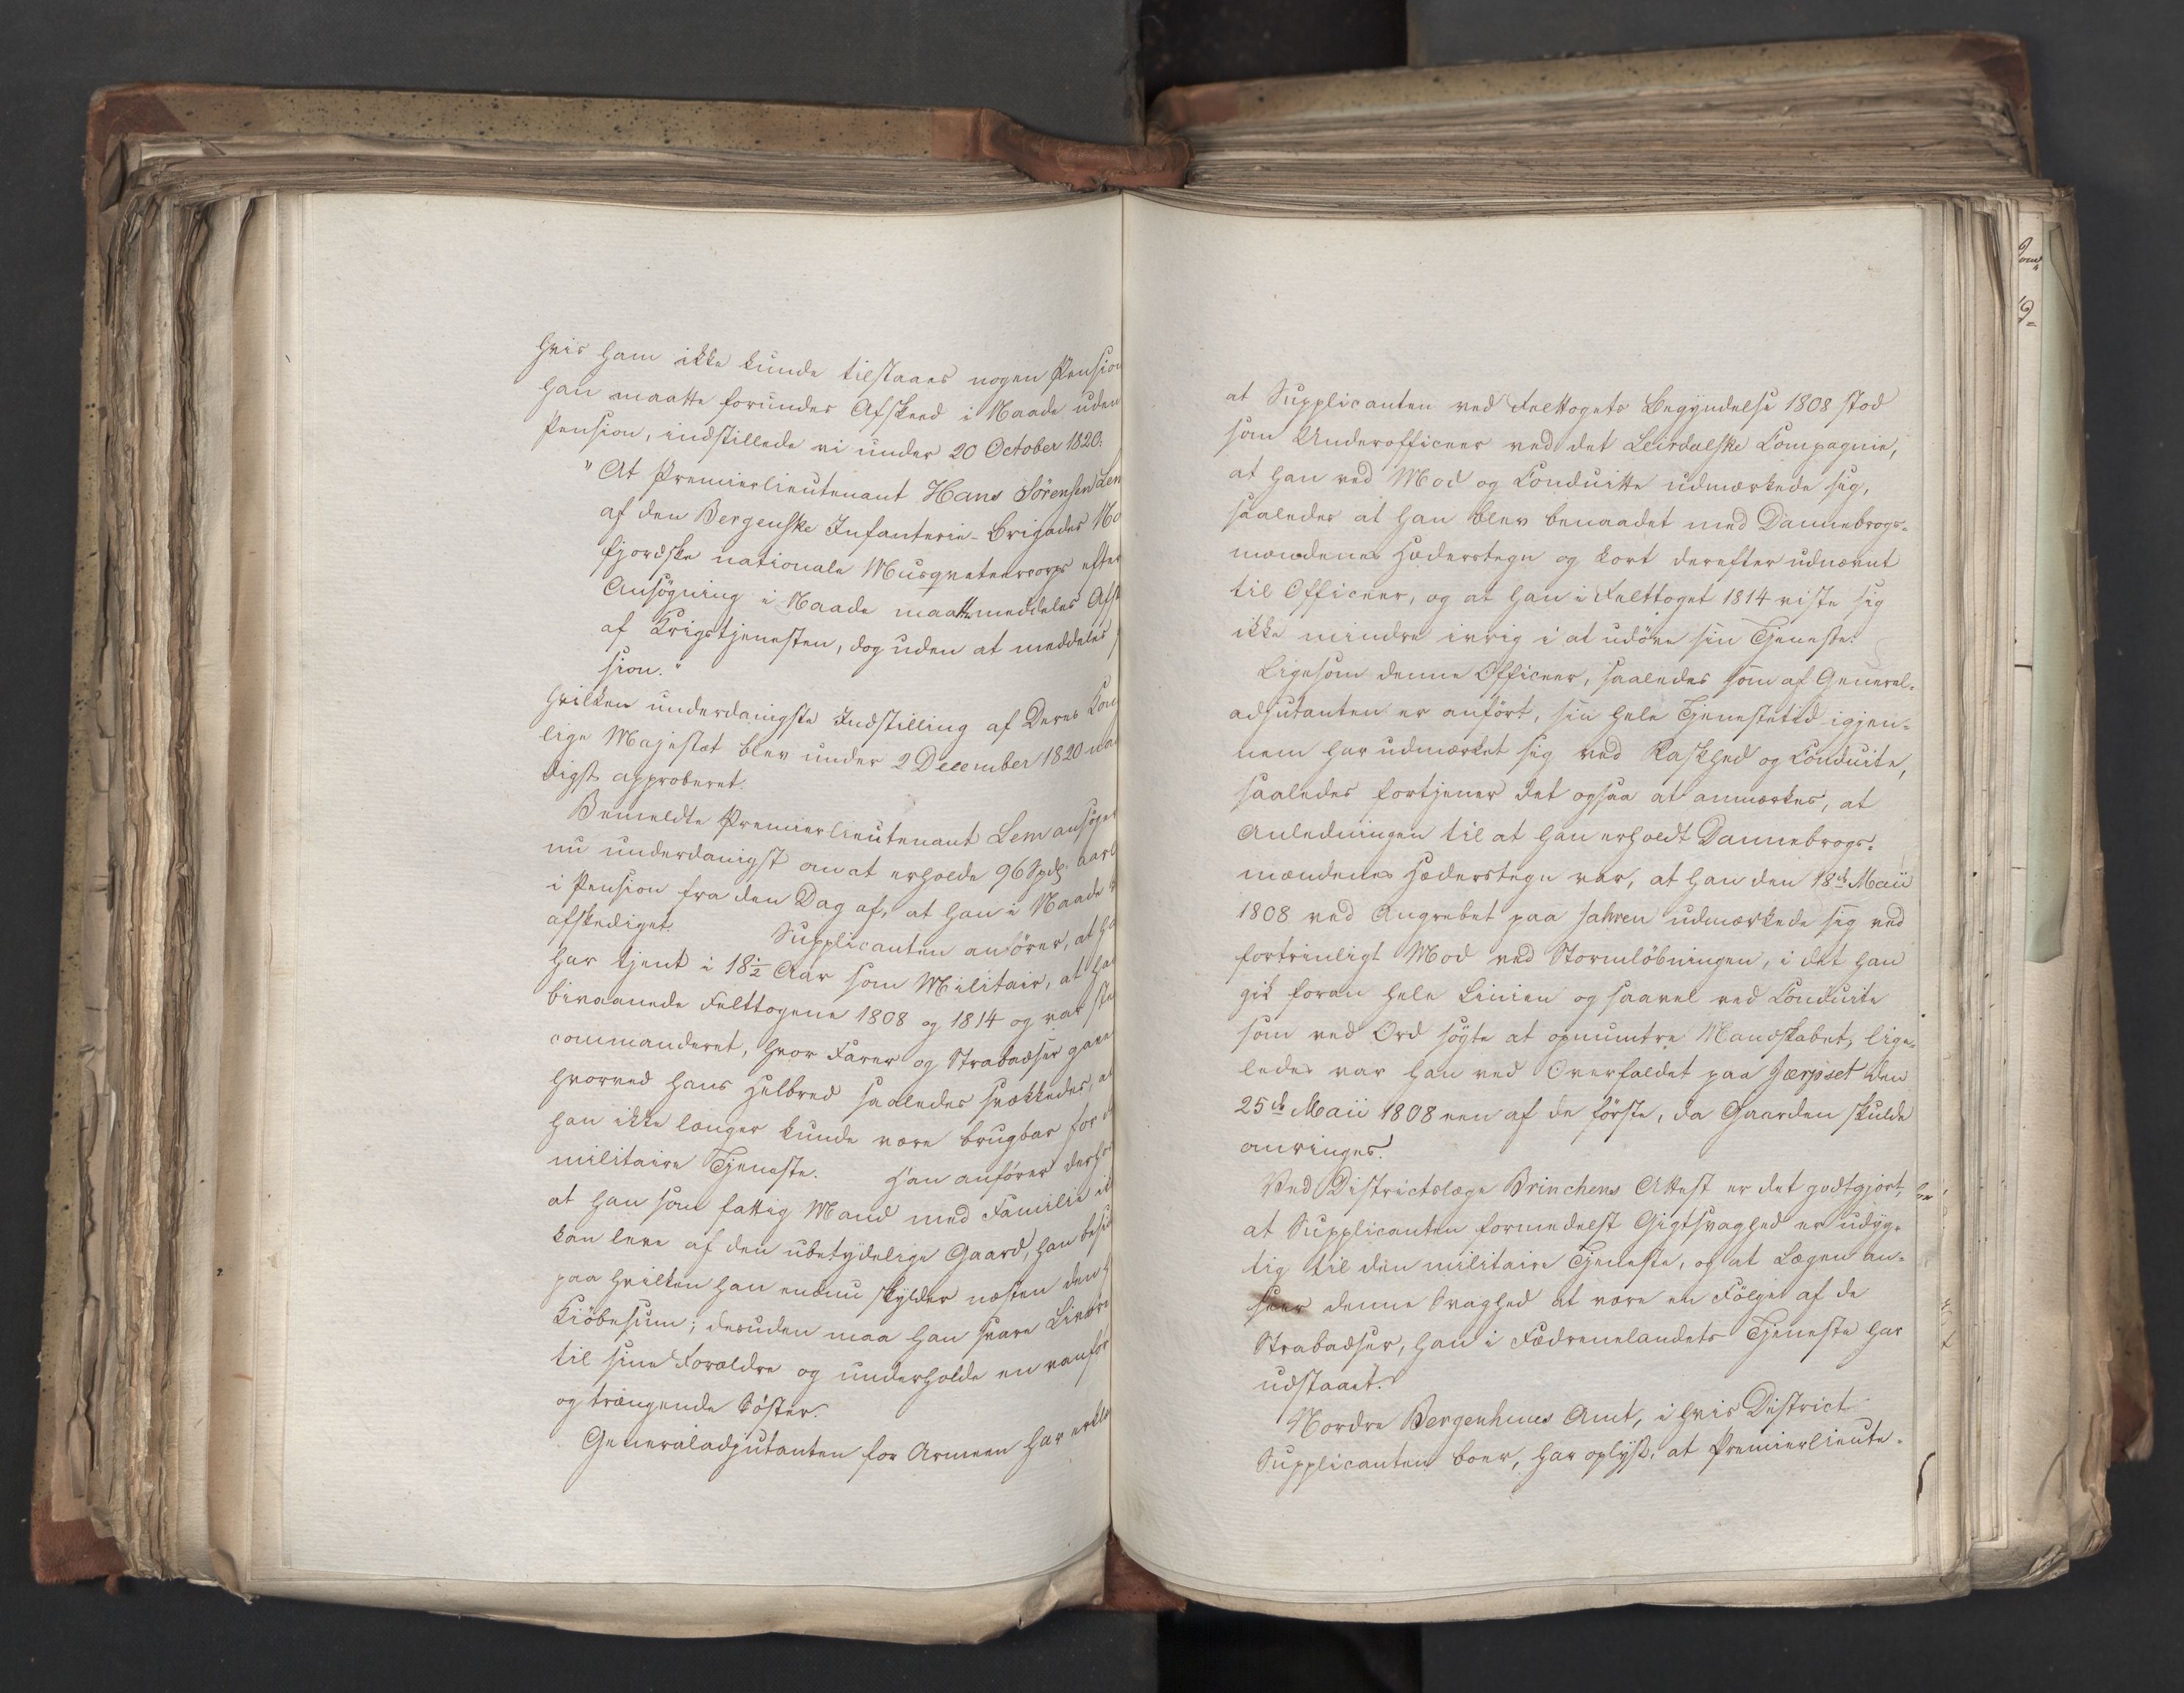 hvis ham ikke kunde tilstaaes nogen Pension
han maatte forundes Afskeed i Naade uden
Pension, indstillede vi under 20 October 1820:
"At Premierlieutenant Hans Sörensen Lem
af den Bergenske Infanterie-Brigades No
fjordske nationale Musqveteercorps efter
Ansögning i Naade maatte meddeles Afsk
af Krigstjenesten, dog uden at meddeles
sion."
Hvilken underdanigste Indstilling af Deres Kong
lige Majestæt blev under 2 December 1820 naa
digst approberet.
Bemeldte Premierlieutenant Lem ansöger
nu underdanigst om at erholde 96 Spd. aarl
i Pension fra den Dag af, at han i Naade
afskediget. Supplicanten anförer, at ha
har tjent i 18½ Aar som Militair, at ha
bivaanede Felttogene 1808 og 1814 og var ste
commanderet, hvor Farer og Strabadser gave
hvorved hans Helbred saaledes svækkedes, at
han ikke længer kunde være brugbar for d
militaire Tjeneste. Han anförer derho
at han som fattig Mand med Familie ik
kan leve af den ubetydelige Gaard, han besid
paa hvilken han endnu skylder næsten den h
Kiöbesum; desuden maa han svare Livöre
til sine Forældre og underholde en vanför
og trængende Söster.
Generaladjutanten for Armeen har erklæ
at Supplicanten ved Felttogets Begyndelse 1808 stod
som Underofficeer ved det Leirdalske Compagnie,
at han ved Mod og Conduitte udmærkede sig,
saaledes at han blev benaadet med Dannebrogs=
mændenes Hæderstegn og kort derefter udnævnt
til Officeer, og at han i Felttoget 1814 viste sig
ikke mindre ivrig i at udöve sin Tjeneste.
Ligesom denne Officeer, saaledes som af General=
adjutanten er anfört, sin hele Tjenestetid igjen=
nem har udmærket sig ved Raskhed og Conduite,
saaledes fortjener det ogsaa at anmærkes, at
Anledningen til at han erholdt Dannebrogs=
mændenes Hæderstegn var, at han den 18de Maii
1808 ved Angrebet paa Jahren udmærkede sig ved
fortrinligt Mod ved Stormlöbningen, i det han
gik foran hele Linien og saavel ved Conduite
som ved Ord sögte at opmuntre Mandskabet, lige=
ledes var han ved Overfaldet paa Jærpset den
25de Maii 1808 een af de förste, da Gaarden skulde
omringes.
Ved Districtslæge Brinchens Attest er det godtgjort,
at Supplicanten formedelst Gigtsvaghed er udyg=
tig til den militaire Tjeneste, og at Lægen an=
seer denne Svaghed at være en Fölge af de
Strabadser, han i Fædrenelandets Tjeneste har
udstaaet.
Nordre Bergenhuus Amt, i hvis District
Supplicanten boer, har oplyst, at Premierlieute=